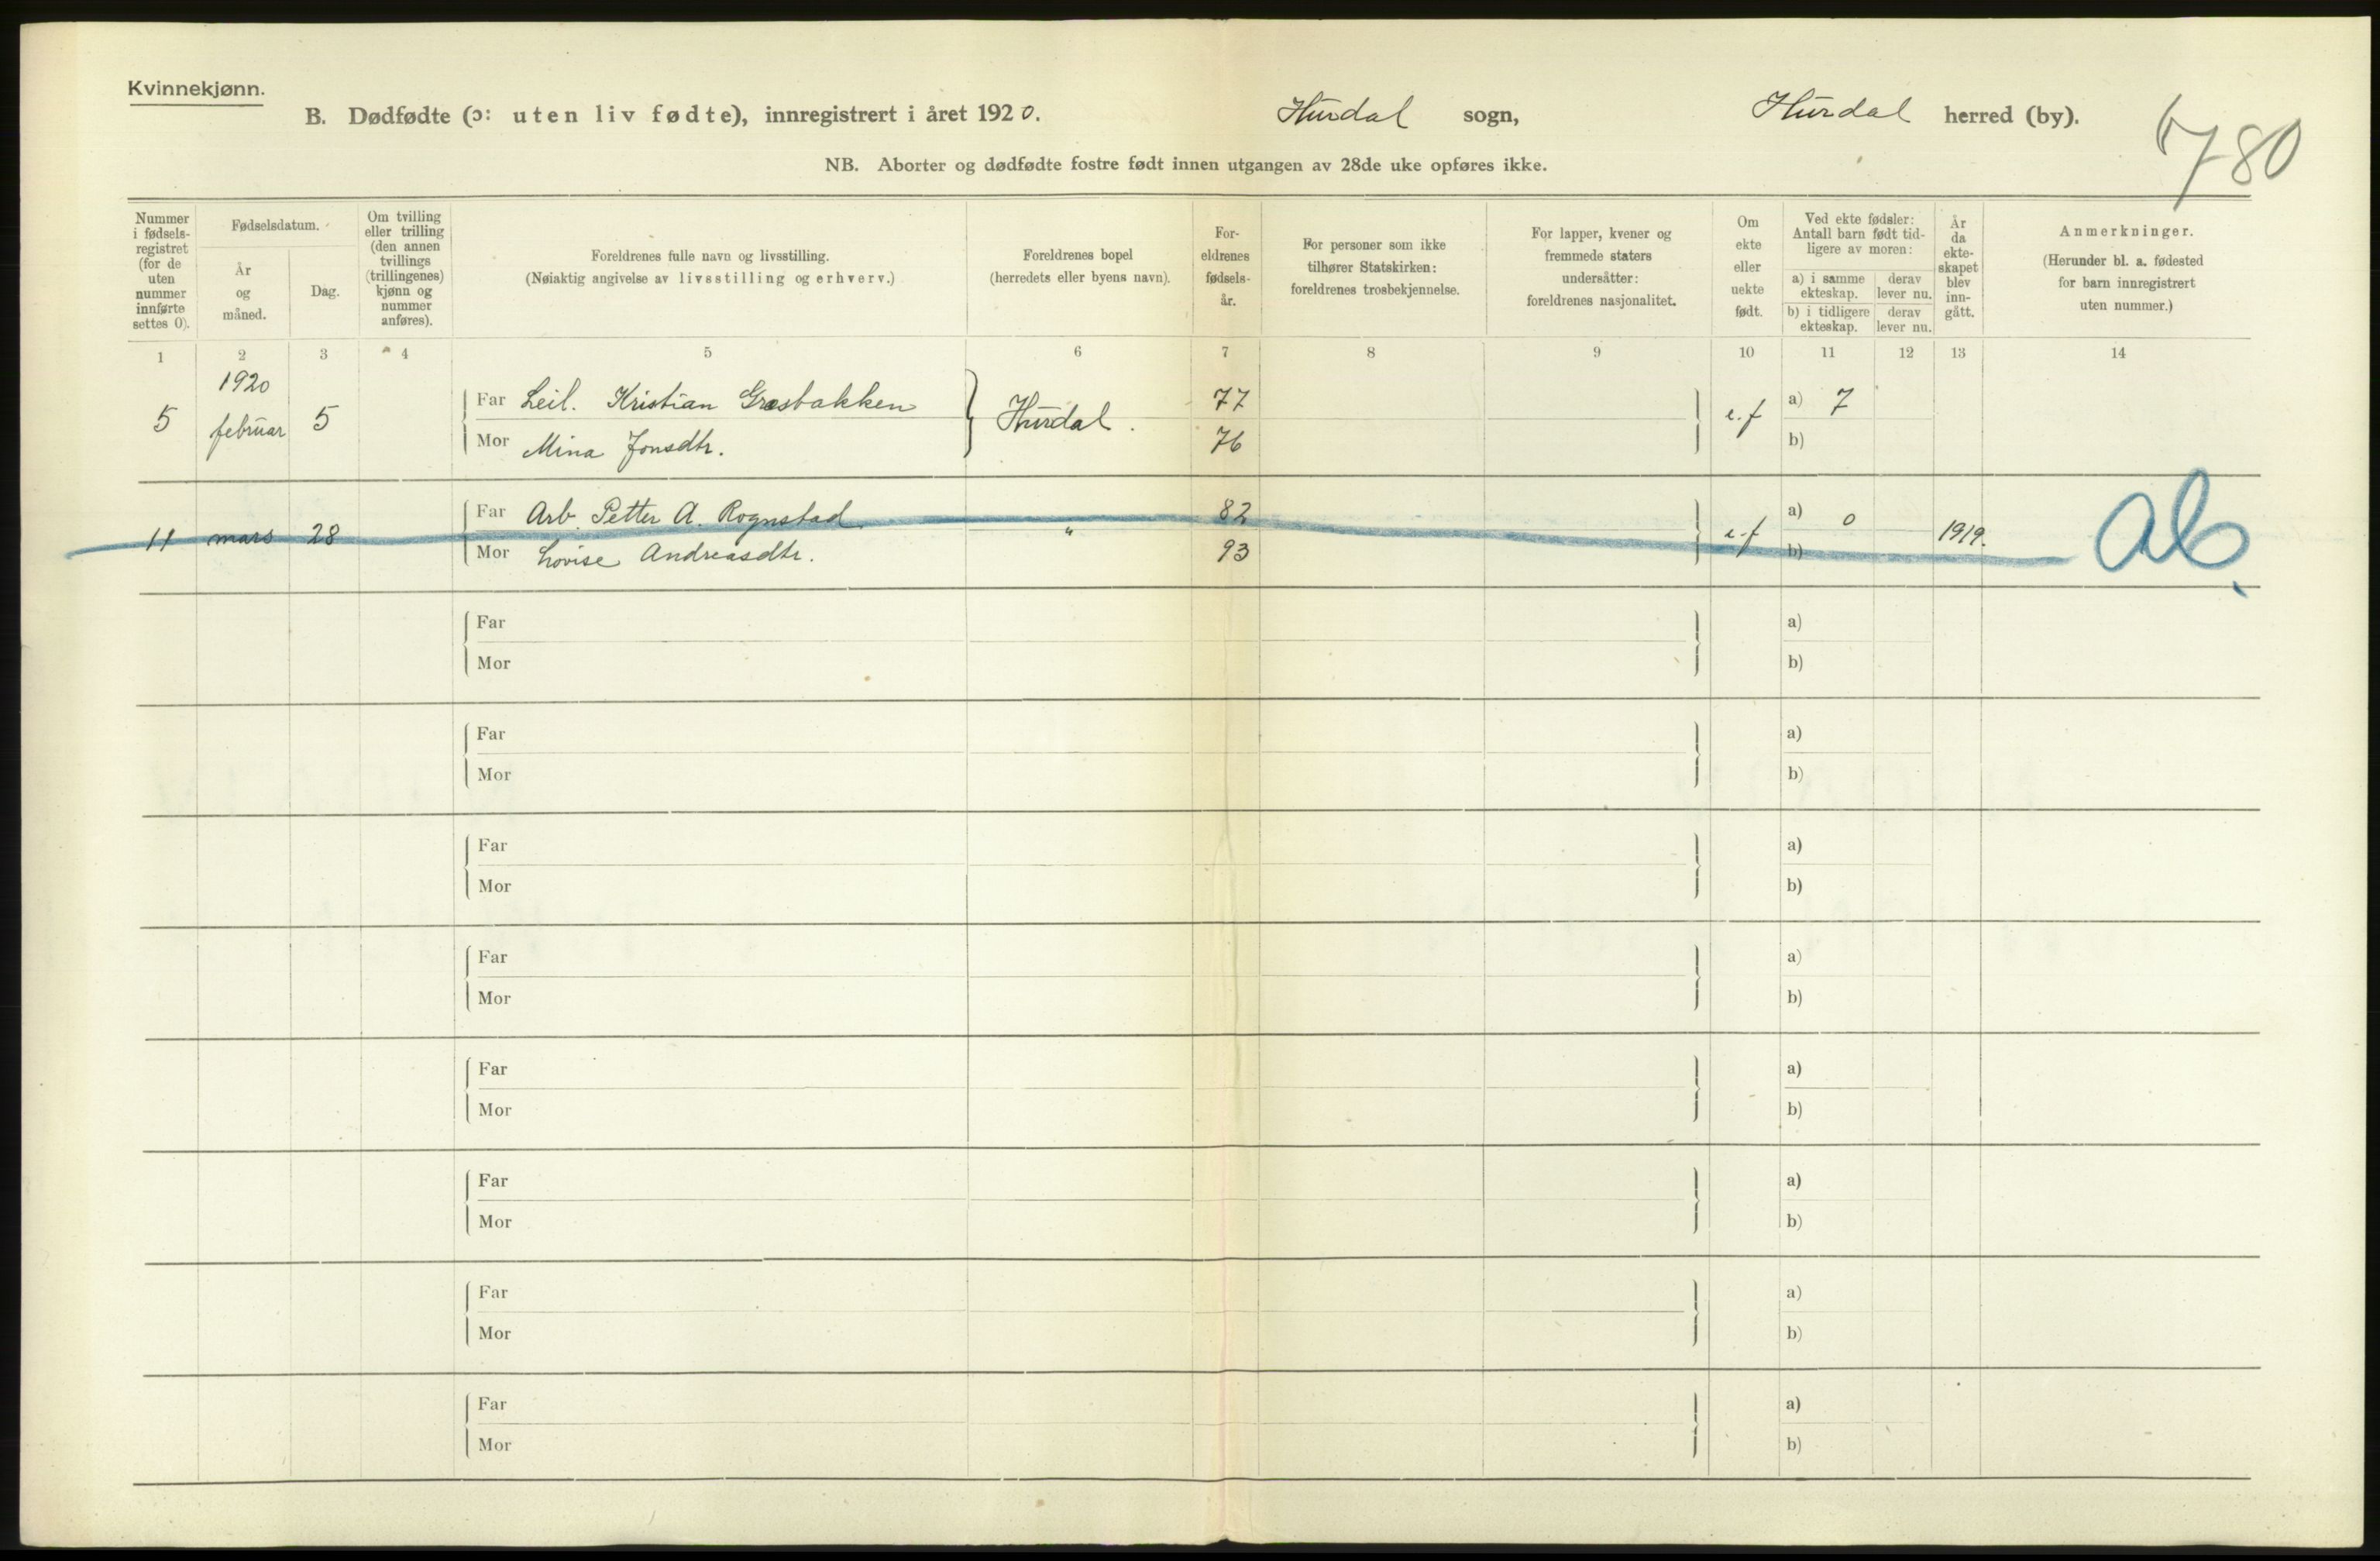 Kvinnekjønn.
B. Dødfødte (ɔ: uten liv fødte), innregistrert i året 1920. Hurdal sogn, Hurdal herred (by).
780
NB. Aborter og dødfødte fostre født innen utgangen av 28de uke opføres ikke.
Nummer i fødsels-registret (for de uten nummer innførte settes 0).
Fødselsdatum.
År og måned.
Dag.
Om tvilling eller trilling (den annen tvillings (trillingenes) kjønn og nummer anføres).
Foreldrenes fulle navn og livsstilling.
(Nøiaktig angivelse av livsstilling og erhverv.)
Foreldrenes bopel
(herredets eller byens navn).
For-eldrenes fødsels-år.
For personer som ikke tilhører Statskirken: foreldrenes trosbekjennelse.
For lapper, kvener og fremmede staters undersåtter: foreldrenes nasjonalitet.
Om ekte eller uekte født.
Ved ekte fødsler: Antall barn født tid-ligere av moren:
a) i samme ekteskap.
derav lever nu.
b) i tidligere ekteskap.
derav lever nu.
År da ekte-skapet blev inn-gått.
Anmerkninger.
(Herunder bl. a. fødested for barn innregistrert uten nummer.)
1 2 3 4 5 6 7 8 9 10 11 12 13 14
1920
5 februar 5 Far Leil. Kristian Græsbakken Hurdal. 77 e.f a) 7
Mor Mina Jonsdtr. 76 b)
11 mars 28 Far Arb. Petter A. Rognstad " 82 e.f a) 0 1919. Ab.
Mor Lovise Andreasdtr. 93 b)
Far a)
Mor b)
Far a)
Mor b)
Far a)
Mor b)
Far a)
Mor b)
Far a)
Mor b)
Far a)
Mor b)
Far a)
Mor b)
Far a)
Mor b)